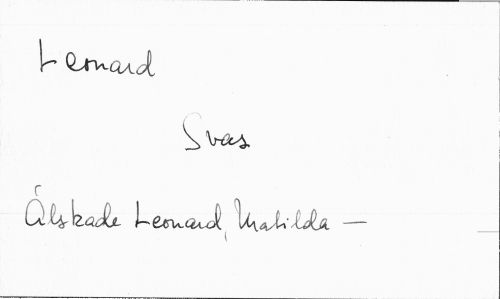 Leonard
Svas
Älskade Leonard, Matilda —